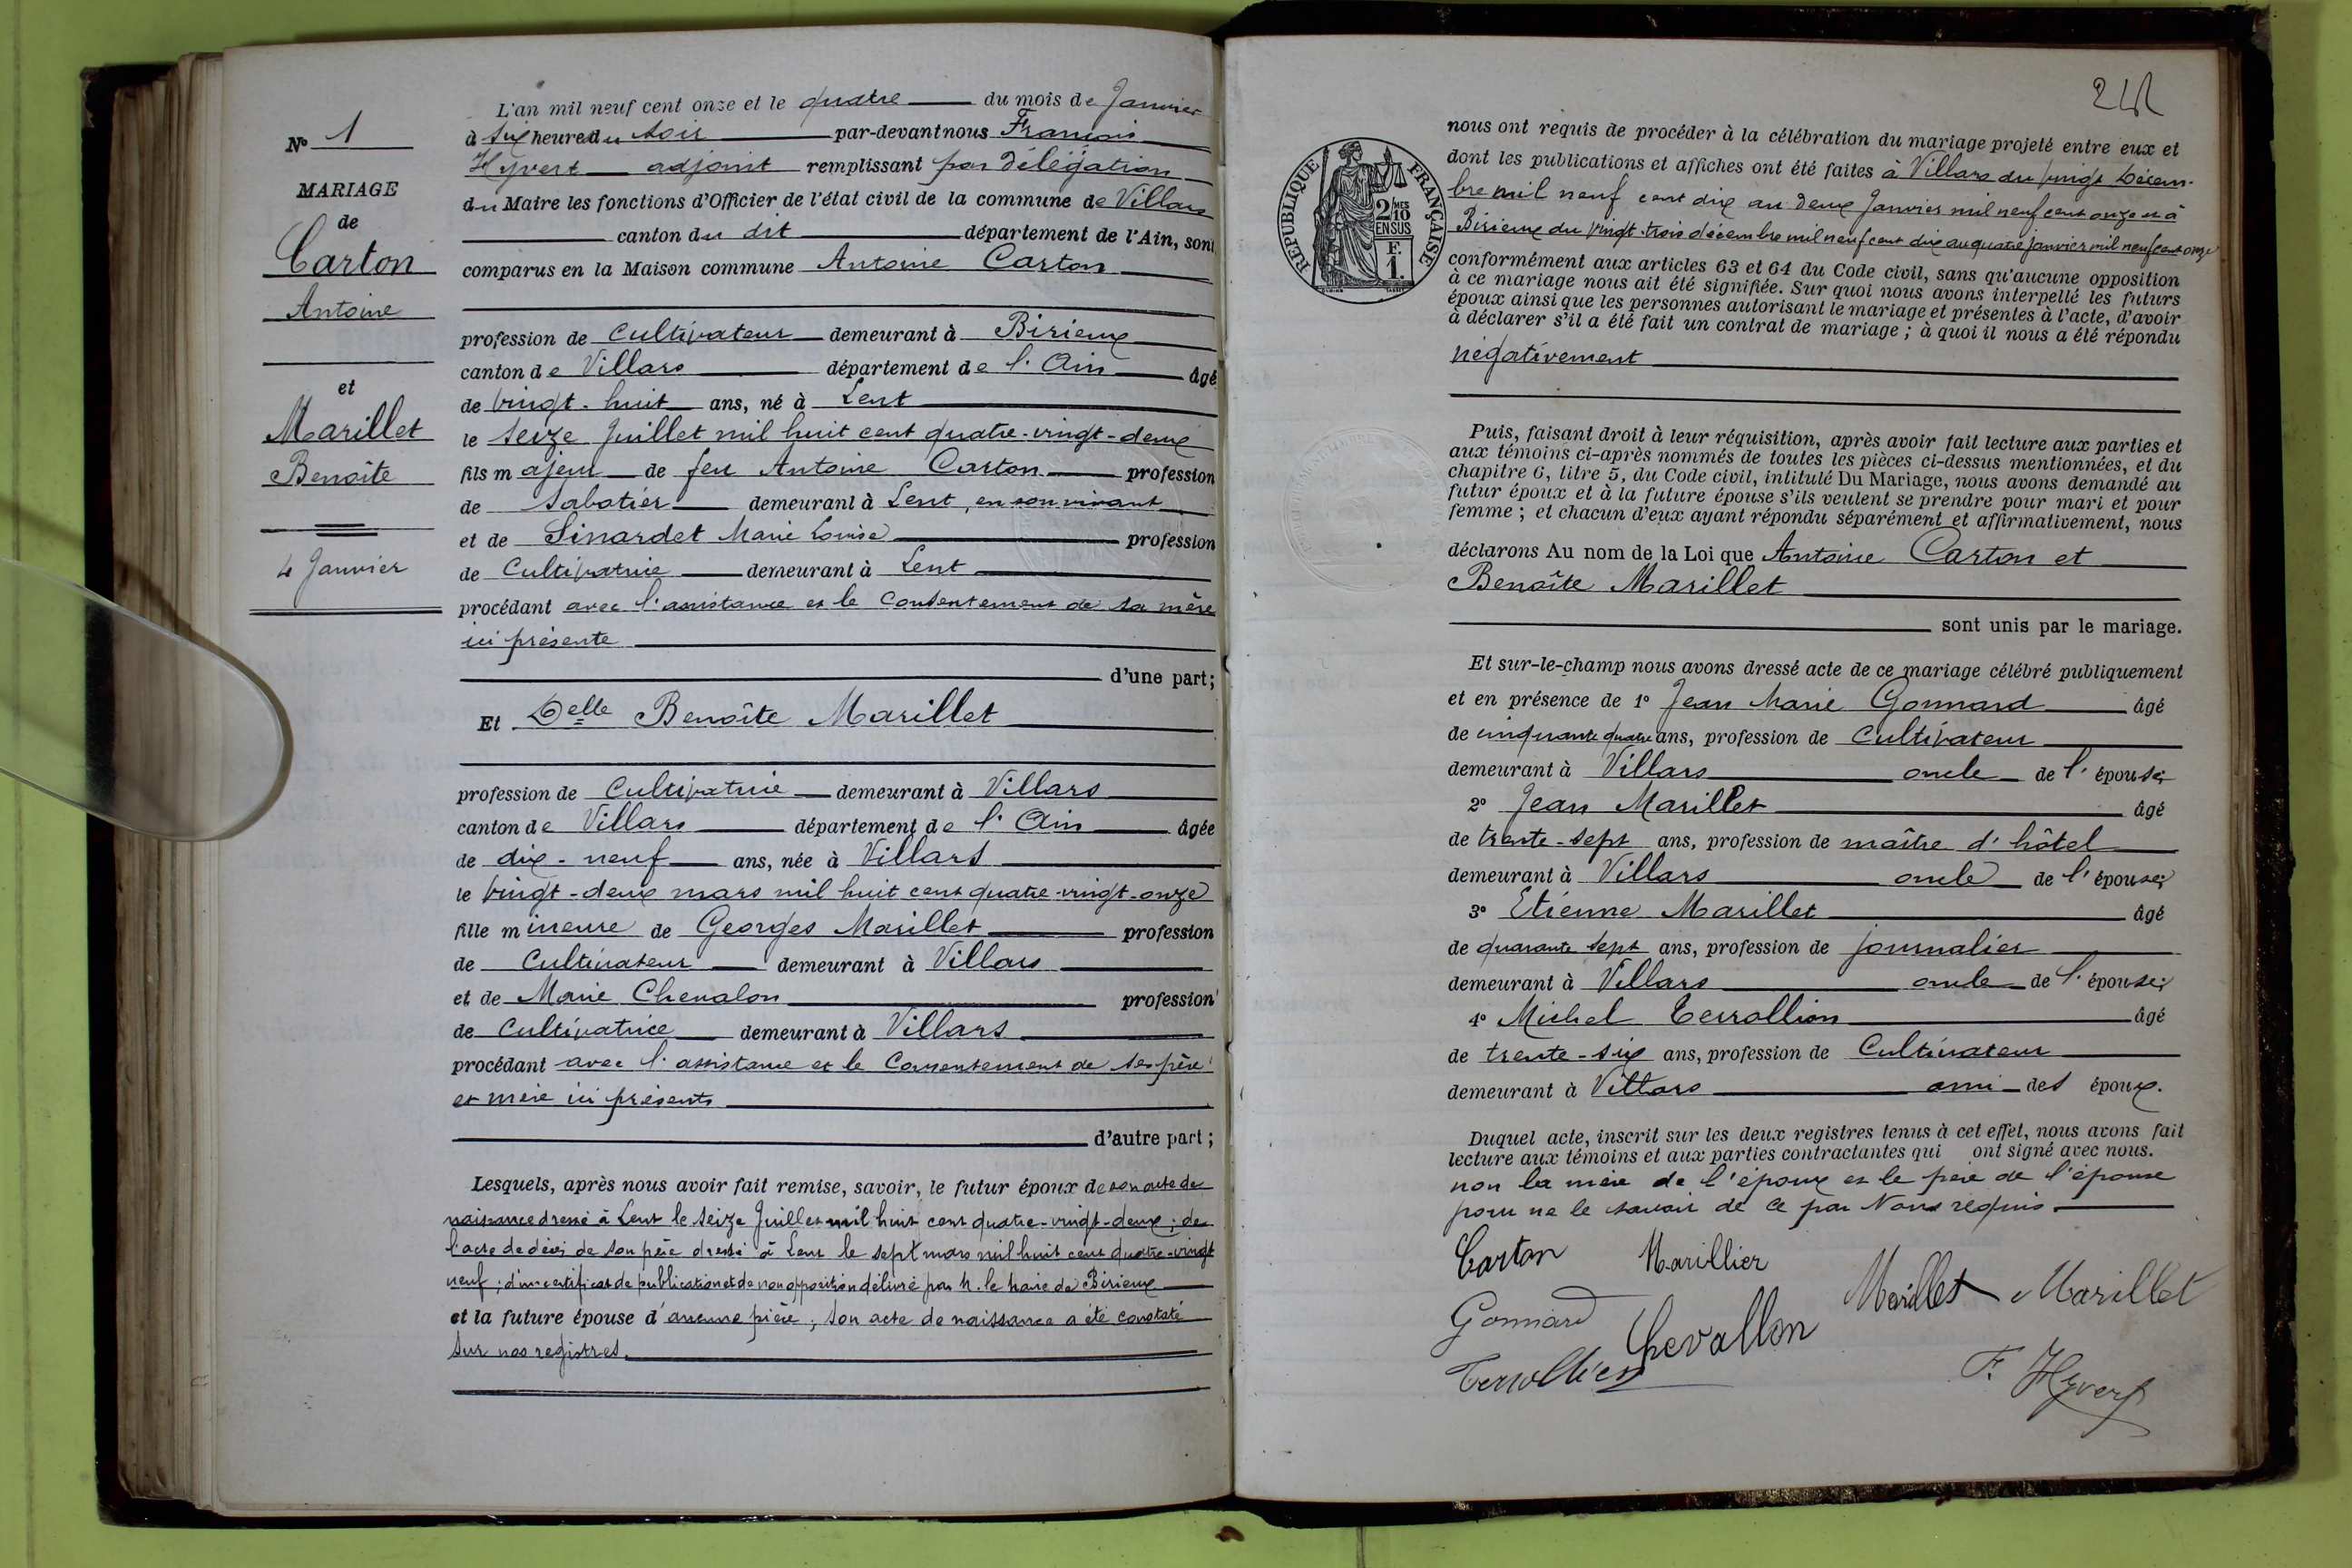 L'an mil neuf cent onze et le quatre du mois de Janvier
à six heures du soir par-devant nous François
Hyvert adjoint remplissant par délégation
du Maire les fonctions d'Officier de l'état civil de la commune de Villars
canton du dit département de l'Ain, sont
comparus en la Maison commune Antoine Carton
profession de Cultivateur demeurant à Birieux
canton de Villars département de l'Ain âgé
de vingt-huit ans, né à Lent
le seize Juillet mil huit cent quatre-vingt-deux
fils majeur de feu Antoine Carton profession
de Sabotier demeurant à Lent, en son vivant
et de Sinardet Marie Louise profession
de Cultivatrice demeurant à Lent
procédant avec l'assistance et le Consentement de sa mère
ici présente
d'une part;
Et Delle Benoîte Marillet
profession de Cultivatrice demeurant à Villars
canton de Villars département de l'Ain âgée
de dix-neuf ans, née à Villars
le vingt-deux mars mil huit cent quatre-vingt-onze
fille mineure de Georges Marillet profession
de Cultivateur demeurant à Villars
et de Marie Chevalon profession
de Cultivatrice demeurant à Villars
procédant avec l'assistance et le Consentement de ses père
et mère ici présents
d'autre part;
Lesquels, après nous avoir fait remise, savoir, le futur époux de son acte de
naissance dressé à Lent le seize Juillet mil huit cent quatre-vingt-deux; de
l'acte de décès de son père dressé à Lent le sept mars mil huit cent quatre-vingt
neuf; d'un certificat de publication et de non opposition délivré par M. le Maire de Birieux
et la future épouse d'aucune pièce, son acte de naissance a été constaté
sur nos registres.
No 1
MARIAGE
de
Carton
Antoine
et
Marillet
Benoîte
4 Janvier
242
RÉPUBLIQUE FRANÇAISE
2/10MES
EN SUS
F.
1.
nous ont requis de procéder à la célébration du mariage projeté entre eux et
dont les publications et affiches ont été faites à Villars du vingt Décem-
bre mil neuf cent dix au deux Janvier mil neuf cent onze et à
Birieux du vingt-trois décembre mil neuf cent dix au quatre janvier mil neuf cent onze
conformément aux articles 63 et 64 du Code civil, sans qu'aucune opposition
à ce mariage nous ait été signifiée. Sur quoi nous avons interpellé les futurs
époux ainsi que les personnes autorisant le mariage et présentes à l'acte, d'avoir
à déclarer s'il a été fait un contrat de mariage; à quoi il nous a été répondu
négativement
Puis, faisant droit à leur réquisition, après avoir fait lecture aux parties et
aux témoins ci-après nommés de toutes les pièces ci-dessus mentionnées, et du
chapitre 6, titre 5, du Code civil, intitulé Du Mariage, nous avons demandé au
futur époux et à la future épouse s'ils veulent se prendre pour mari et pour
femme; et chacun d'eux ayant répondu séparément et affirmativement, nous
déclarons Au nom de la Loi que Antoine Carton et
Benoîte Marillet
sont unis par le mariage.
Et sur-le-champ nous avons dressé acte de ce mariage célébré publiquement
et en présence de 1° Jean Marie Gonnard âgé
de cinquante quatre ans, profession de Cultivateur
demeurant à Villars oncle de l'épouse;
2° Jean Marillet âgé
de trente-sept ans, profession de maître d'hôtel
demeurant à Villars oncle de l'épouse;
3° Etienne Marillet âgé
de quarante sept ans, profession de journalier
demeurant à Villars oncle de l'épouse;
4° Michel Terrollion âgé
de trente-six ans, profession de Cultivateur
demeurant à Villars ami des époux.
Duquel acte, inscrit sur les deux registres tenus à cet effet, nous avons fait
lecture aux témoins et aux parties contractantes qui ont signé avec nous.
non la mère de l'époux et le père de l'épouse
pour ne le savoir de ce par Nous requis.
Carton Marillier
Marillet Marillet
Gonnard Chevallon
Terrollion F. Hyvert